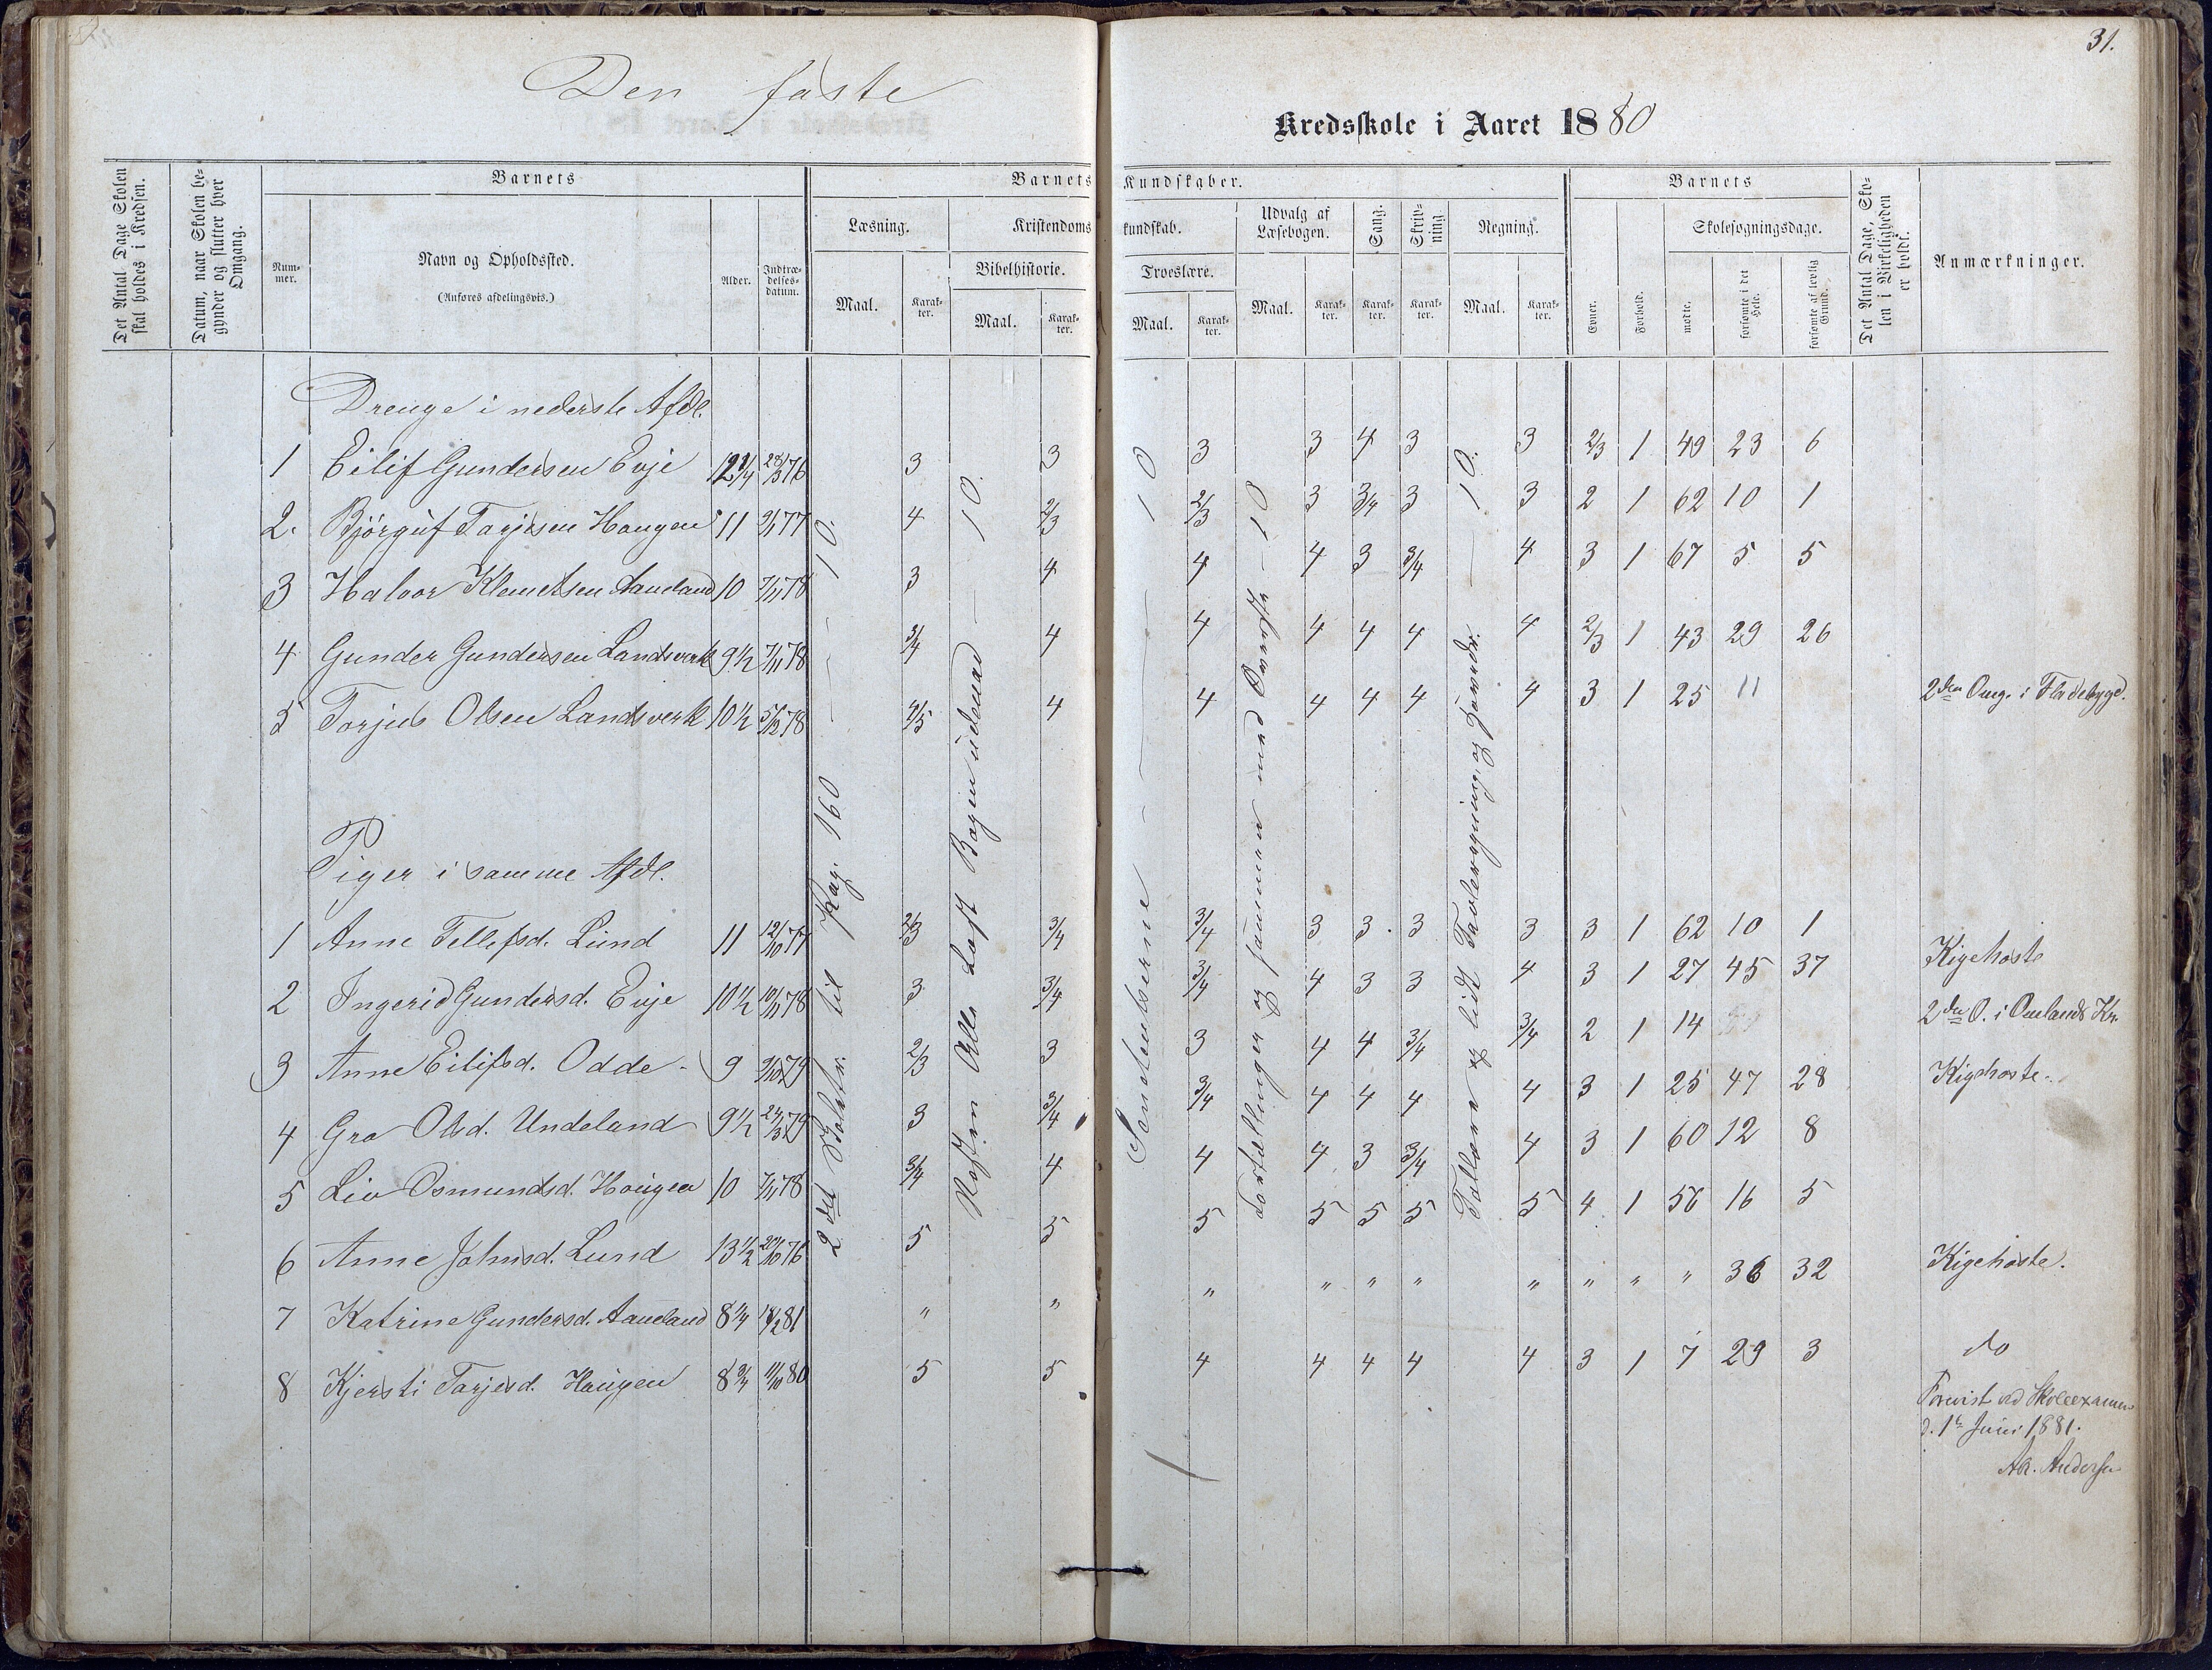 31.
Den faste
Kredsskole i Aaret 1880
Det Antal Dage Skolen skal holdes i Kredsen.
Datum, naar Skolen begynder og slutter hver Omgang.
Barnets
Nummer.
Navn og Opholdssted.
(Anføres afdelingsvis.)
Alder.
Indtrædelses-datum.
Barnets Kundskaber.
Læsning.
Maal.
Karakter.
Kristendomskundskab.
Bibelhistorie.
Maal.
Karakter.
Troeslære.
Maal.
Karakter.
Udvalg af Læsebogen.
Maal.
Karakter.
Sang.
Karakter.
Skrivning.
Karakter.
Regning.
Maal.
Karakter.
Barnets
Evner.
Forhold.
Skolesøgningsdage.
mødte.
forsømte i det Hele.
forsømte af lovlig Grund.
Det Antal Dage, Skolen i Virkeligheden er holdt.
Anmærkninger.
Drenge i nederste Afdl.
1 Eilif Gundersen Evje 12 1/4 23/3 76 3 3 3 3 4 3 3 2/3 1 49 23 6
2. Bjørguf Tarjesen Haugen 11 9/1 77 4 2/3 2/3 3 3/4 3 3 2 1 62 10 1
3 Halvor Klemetsen Aaneland 10 7/11 78 3 4 4 4 3 3/4 4 3 1 67 5 5
4 Gunder Gundersen Landsverk 9 1/2 7/11 78 3/4 4 4 4 4 4 4 2/3 1 43 29 26
5 Torjus Olsen Landsverk 10 1/2 5/12 78 4/5 4 4 4 4 4 4 3 1 25 11 2den Omg. i Flodebygd.
Piger i samme Afdl.
1 Anne Tellefsd. Lund 11 12/10 77 2/3 3/4 3/4 3 3 3 3 3 1 62 10 1
2 Ingerid Gundersd. Evje 10 1/2 10/11 78 3 3/4 3/4 4 3 3 4 3 1 27 45 37 Kigehoste
3 Anne Eilifsd. Odde 9 9/10 79 2/3 3 3 4 4 3/4 3/4 2 1 14 2den O. i Omlands Kr.
4 Gro Olsd. Undeland 9 1/2 24/3 79 3 3/4 3/4 4 4 4 4 3 1 25 47 28 Kigehoste
5 Liv Osmundsd. Haugen 10 7/11 78 3/4 4 4 4 3 3/4 4 3 1 60 12 8
6 Anne Johnsd. Lund 13 1/2 20/10 76 5 5 5 5 5 5 5 4 1 56 16 5
7 Katrine Gundersd. Aaneland 8 1/4 18/2 81 " " " " " " " " " " 36 32 Kigehoste.
8 Kjersti Tarjesd. Haugen 8 3/4 11/10 80 5 5 4 4 4 4 4 3 1 7 29 3 do
2det Skoletr. til Pag. 160 — 10.
Bogen udenad — 10.
Sententserne — 10
Fortællinger og sammen med Øverste — 10
Tallene og lidt Tavleregning og Hovedr. — 10.
Forevist ved Skoleexamen
d. 1ste Juni 1881.